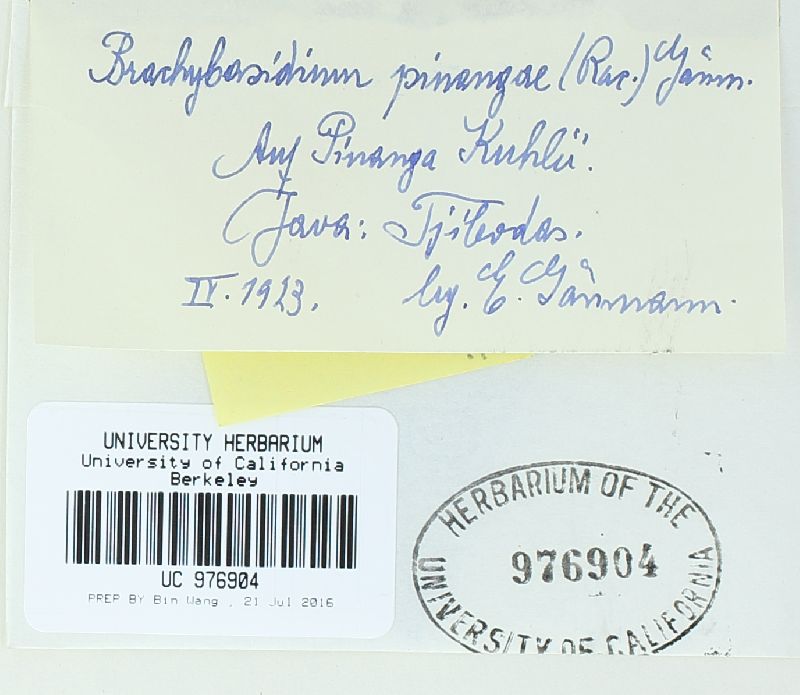 Brachybasidium pinangae (Rac.) Gäum.
Auf Pinanga Kuhlii.
Java: Tjibodas.
IV. 1923. leg. E. Gäumann.
UNIVERSITY HERBARIUM
University of California
Berkeley
UC 976904
PREP BY Bin Wang , 21 Jul 2016
HERBARIUM OF THE
976904
UNIVERSITY OF CALIFORNIA